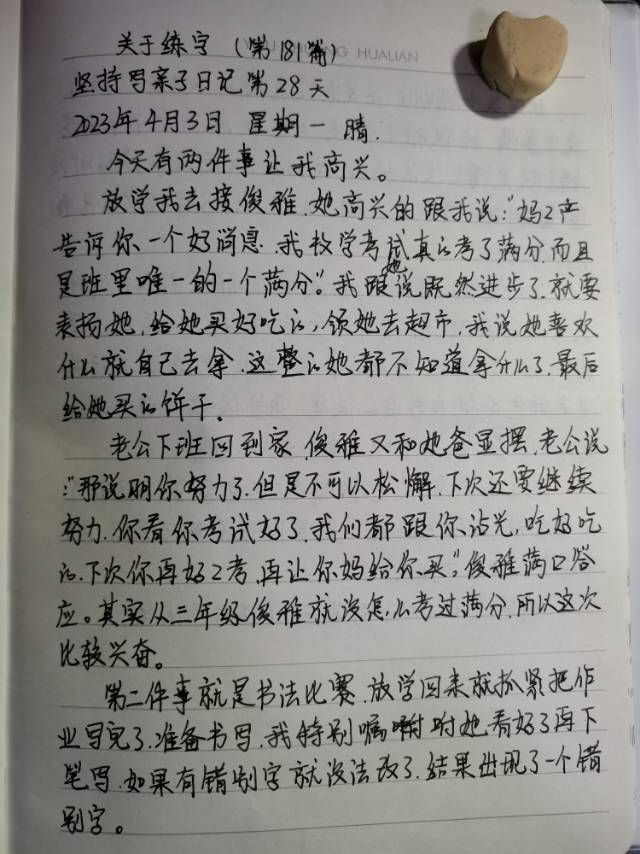 关于练字（第181篇）
HUALIAN
坚持写亲子日记第28天
2023年4月3日 星期一 晴.
今天有两件事让我高兴。
放学我去接俊雅.她高兴的跟我说:"妈2产
告诉你、一个好消息.我数学考试真的考了满分.而且
是班里唯一的一个满分."我跟她说既然进步了.就要
表扬她,给她买好吃的,领她去超市,我说她喜欢
什么就自己去拿.这整的她都不知道拿什么了.最后
给她买的饼干.
老公下班回到家.俊雅又和她爸显摆.老公说
:"那说明你努力了.但是不可以松懈.下次还要继续
努力.你看你考试好了.我们都跟你沾光,吃好吃
的.下次你再好2考.再让你妈给你买."俊雅满口答
应。其实从三年级俊雅就没怎么考过满分.所以这次
比较兴奋。
第二件事就是书法比赛.放学回来就抓紧把作
业写完了.准备书写.我特别嘱咐她看好了再下
笔写.如果有错别字就没法改了.结果出现了一个错
别字。